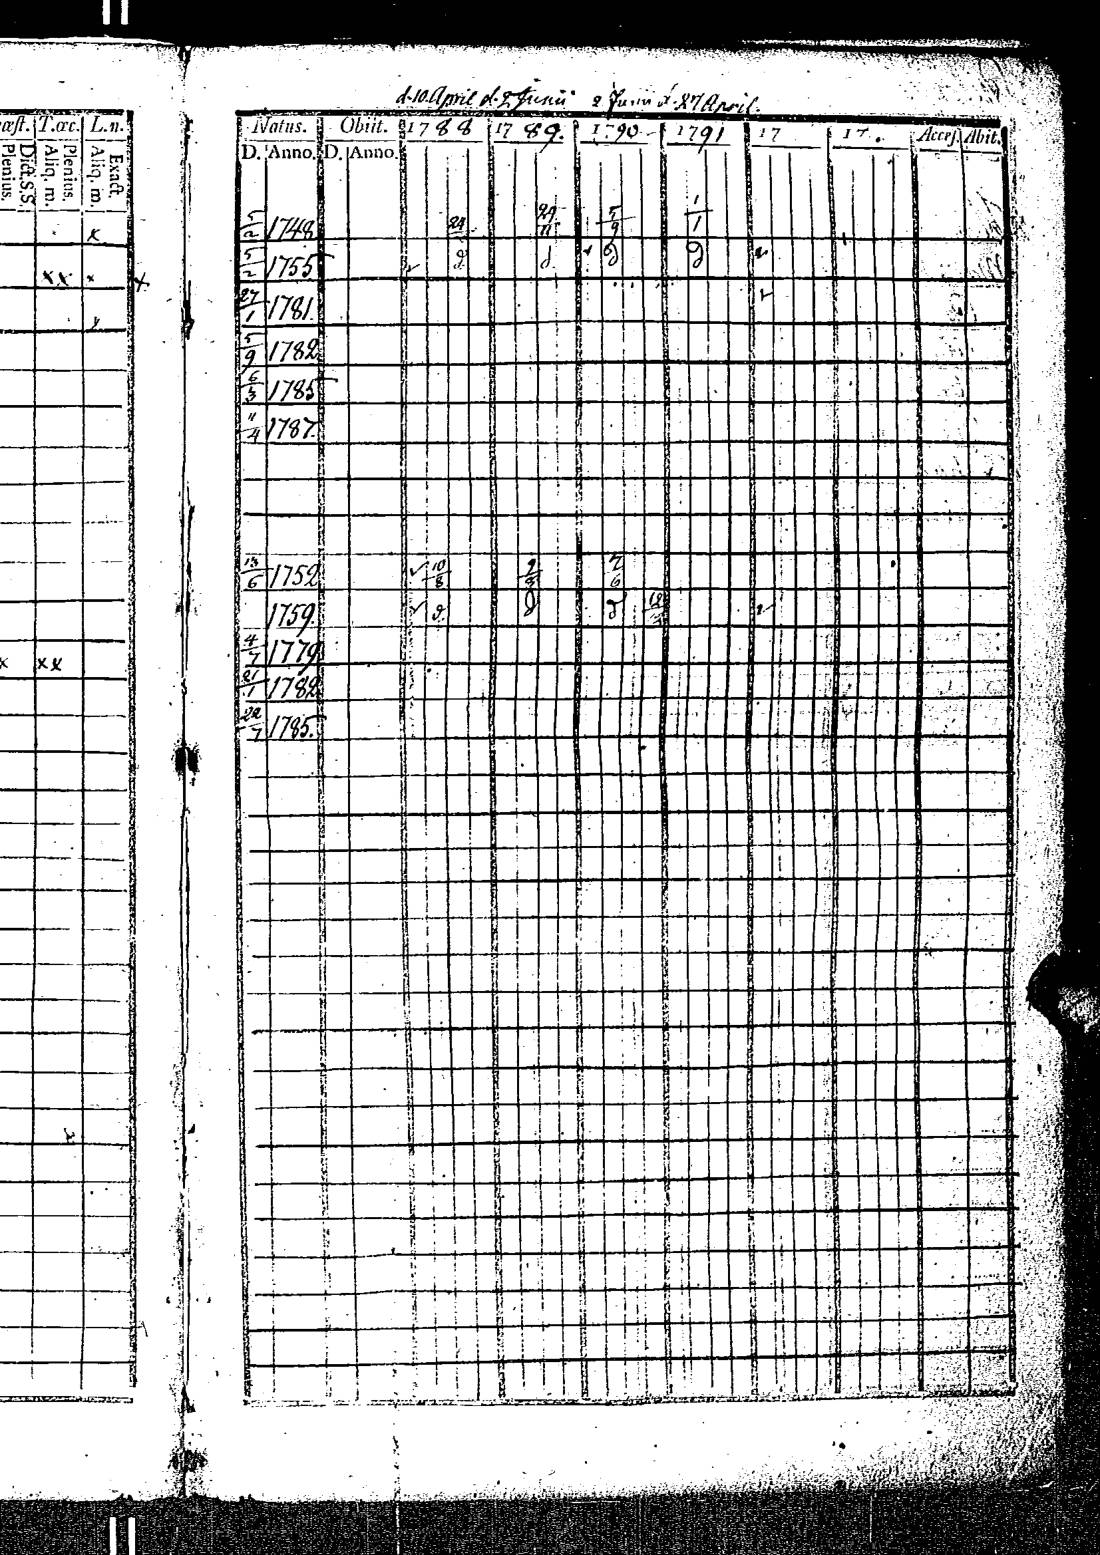 d. 10. April d. 2 Junii 2 Junii d. 27 April.
œst. T.œc. L.n.
Plenius. Dict. S.S. Aliq. m. Plenius. Aliq. m. Exact.
Natus. Obiit. 1788 1789. 1790 1791 17 17 Accef. Abit.
D. Anno. D. Anno.
5/2 1748 24 29/11 5/9 1/1
x
5/2 1755 d. d. d d
xx x x
27/1 1781
5/9 1782
6/3 1785
11/4 1787.
13/6 1752 10/8 9/8 7/6
1759. d. d d 18
4/7 1779
x xx
21/1 1782
22/7 1785.